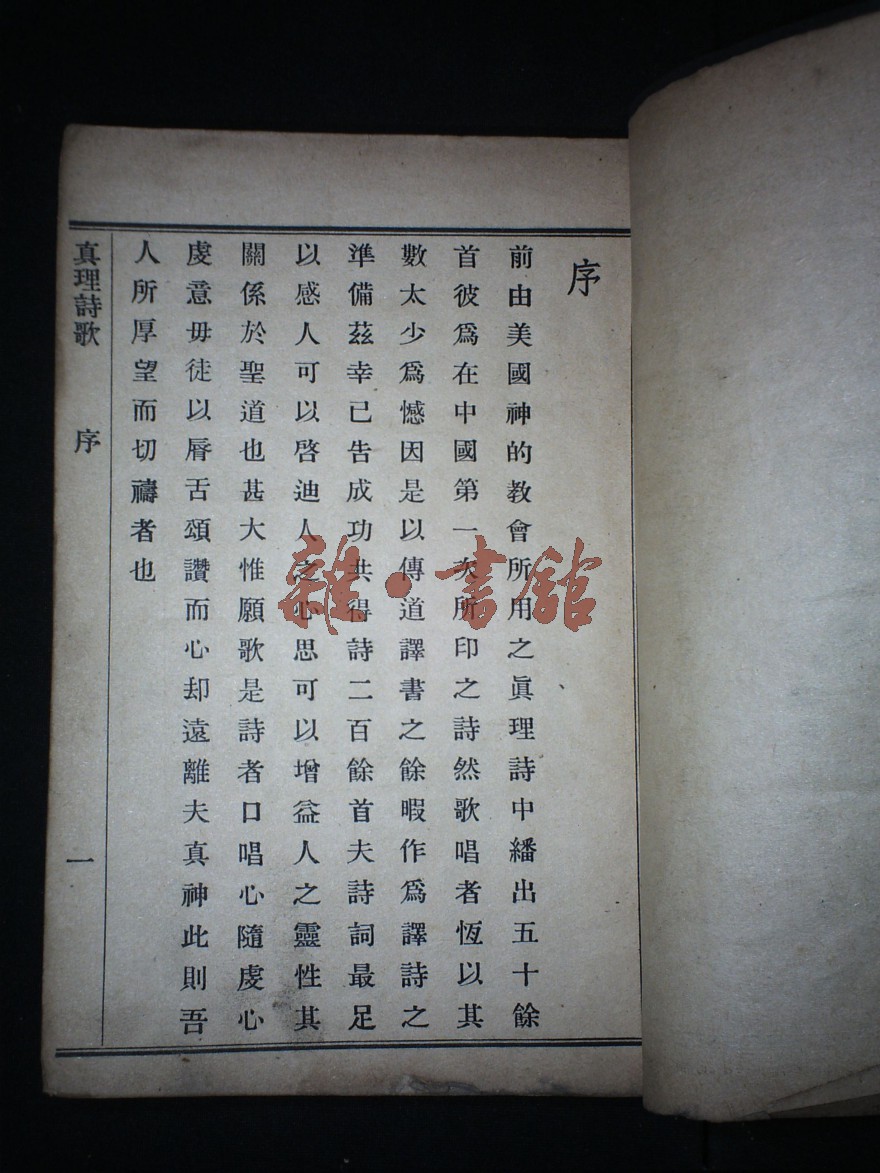 序
前由美國神的教會所用之眞理詩中繙出五十餘
首彼爲在中國第一次所印之詩然歌唱者恆以其
數太少爲憾因是以傳道譯書之餘暇作爲譯詩之
準備茲幸已告成功共得詩二百餘首夫詩詞最足
以感人可以啓迪人之心思可以增益人之靈性其
關係於聖道也甚大惟願歌是詩者口唱心隨虔心
虔意毋徒以脣舌頌讚而心却遠離夫真神此則吾
人所厚望而切禱者也
真理詩歌 序 一
雜·書館